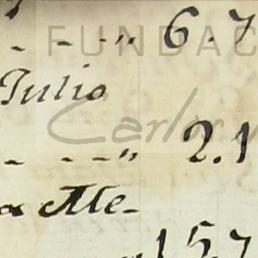 - - - „ 6.7
FUNDAC
Julio
Carlos
- - - „ 2.1
a Me-
15.7